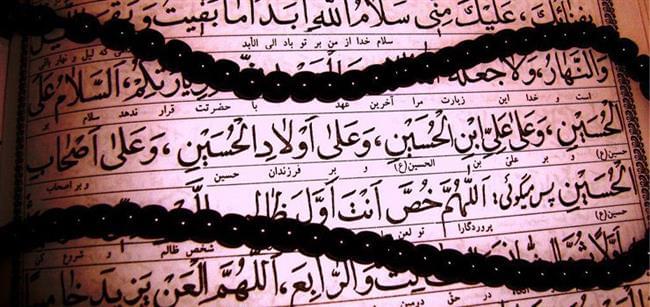 بِفِنآئِكَ، عَلَيْكَ مِنّى سَلامُ اللهِ اَبَداً ما بَقيتُ وَبَقِىَ
سلام خدا از من بر تو باد الی الأبد که لیل و نهار باقی
وَالنَّهارُ، وَلا جَعَلَهُ زِيارَتِكُمْ، اَلسَّلامُ عَلَى
است و خدا این زیارت مرا آخرین عهد با حضرتت قرار ندهد سلام بر
الْحُسَيْنِ، وَعَلى عَلِىِّ ابْنِ الْحُسَيْنِ، وَعَلى اَوْلادِ الْحُسَيْنِ، وَعَلى اَصْحابِ
حسین(ع) و بر علی بن الحسین(ع) و بر فرزندان حسین و بر اصحاب
الْحُسَيْنِ پس میگوئی: اَللّهُمَّ خُصَّ اَنْتَ اَوَّلَ ظالِمٍ
حسین(ع) پروردگارا تو شخص ظالم و شروع کن
اَوَّلاً ثُمَّ وَالرّابِعَ، اَللّهُمَّ الْعَنْ يَزيدَ
در حق